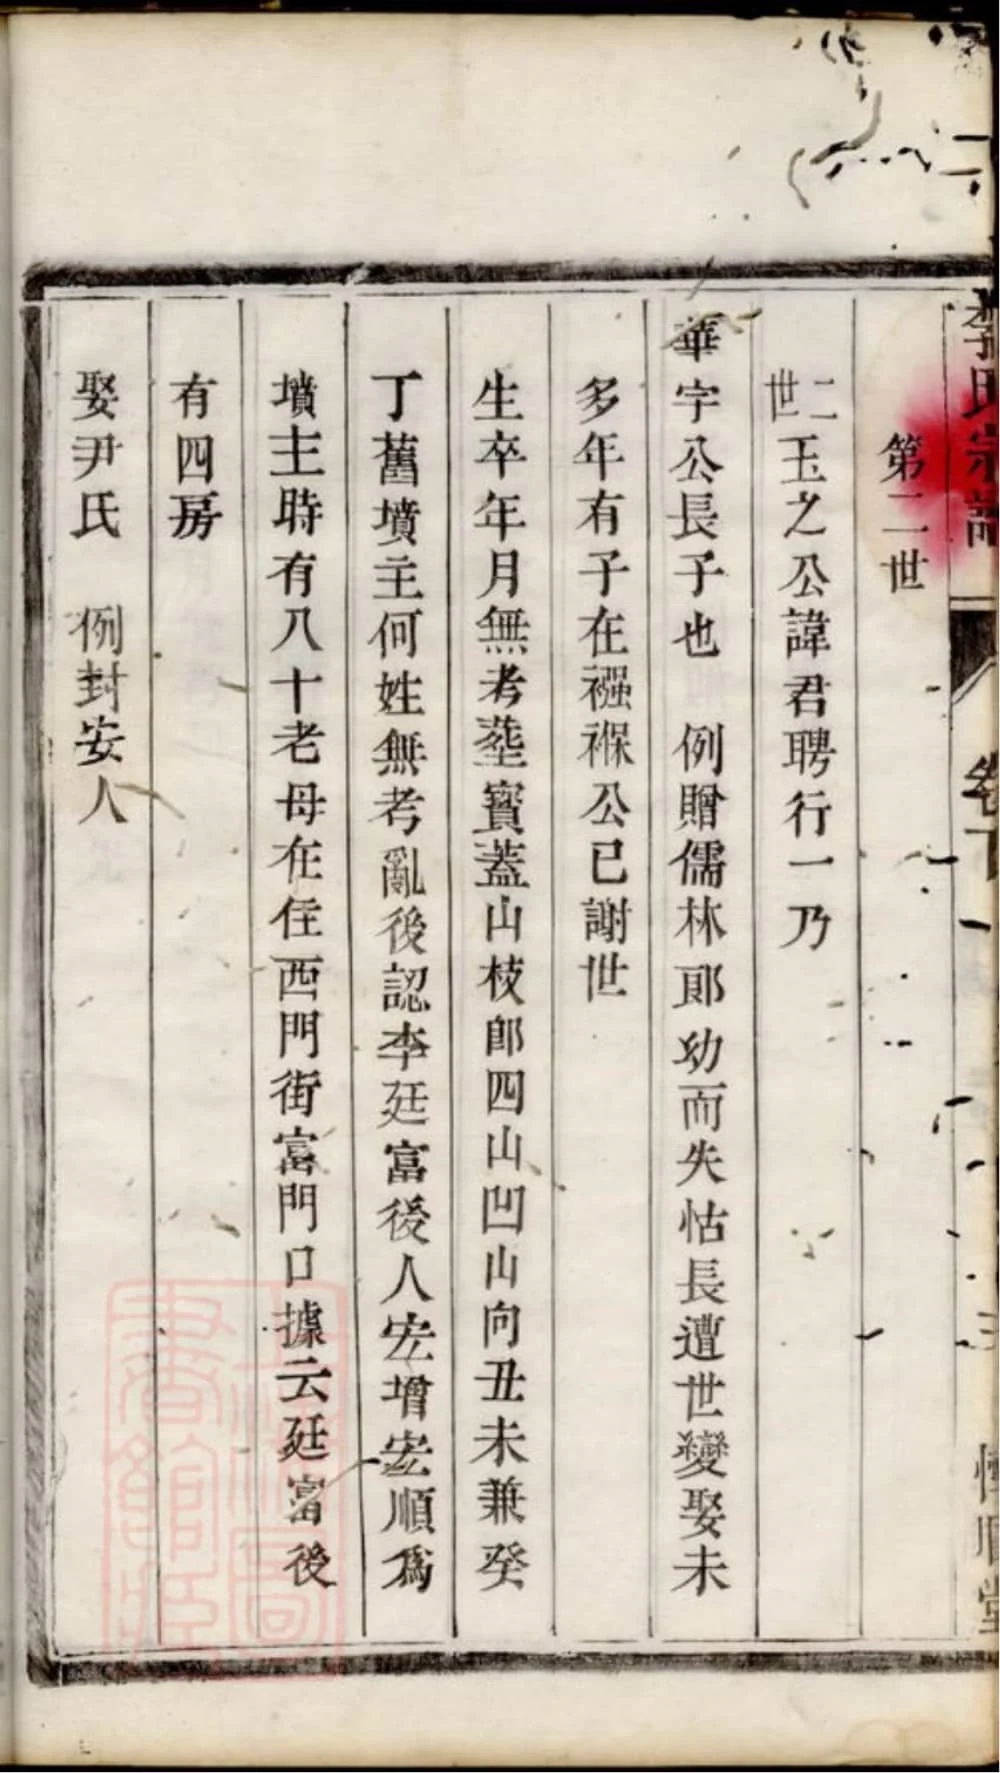 李氏宗譜 卷下
第二世
二世玉之公諱君聘行一乃
華宇公長子也 例贈儒林郎幼而失怙長遭世變娶未
多年有子在襁褓公已謝世
生卒年月無考塟寳蓋山枝郎四山凹山向丑未兼癸
丁舊墳主何姓無考亂後認李廷富後人宏增宏順為
墳主時有八十老母在住西門街富門口據云廷富後
有四房
娶尹氏 例封安人